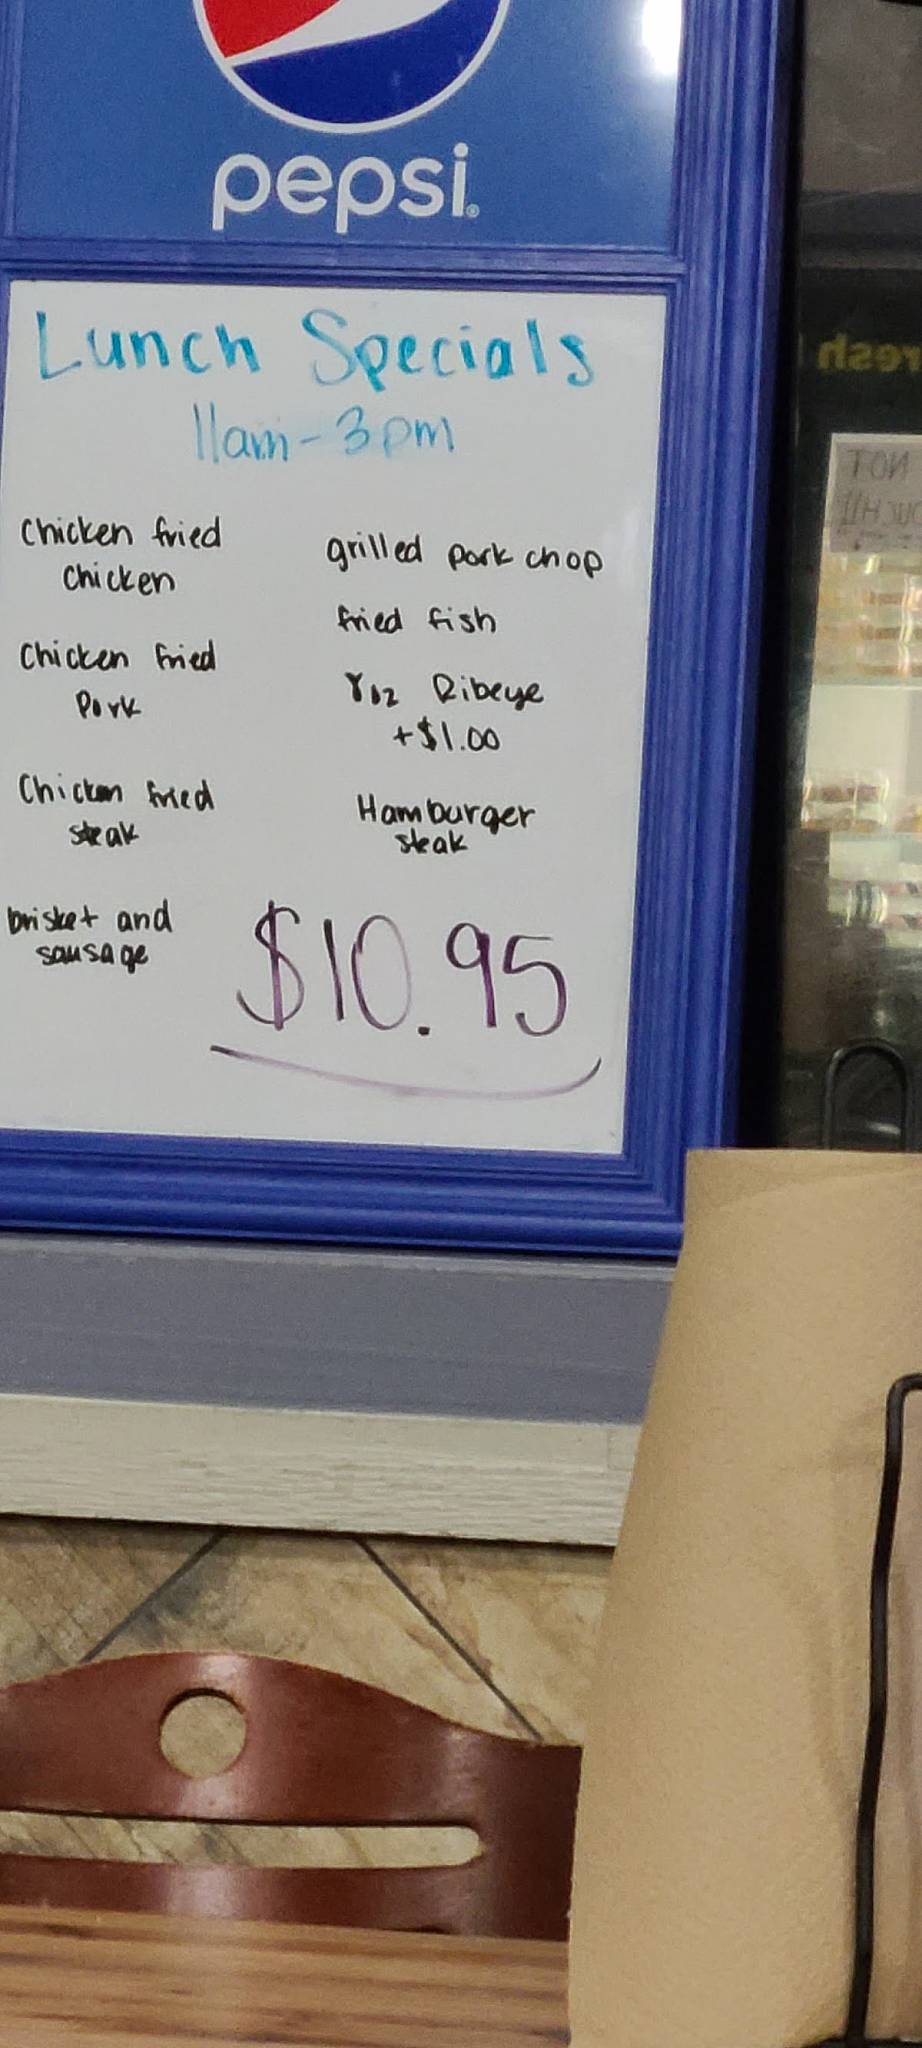 pepsi
Lunch Specials
11am - 3pm
Chicken fried
chicken
Chicken fried
Pork
Chicken fried
steak
brisket and
sausage
grilled pork chop
fried fish
8oz Ribeye
+$1.00
Hamburger
steak
$10.95
resh
NOT